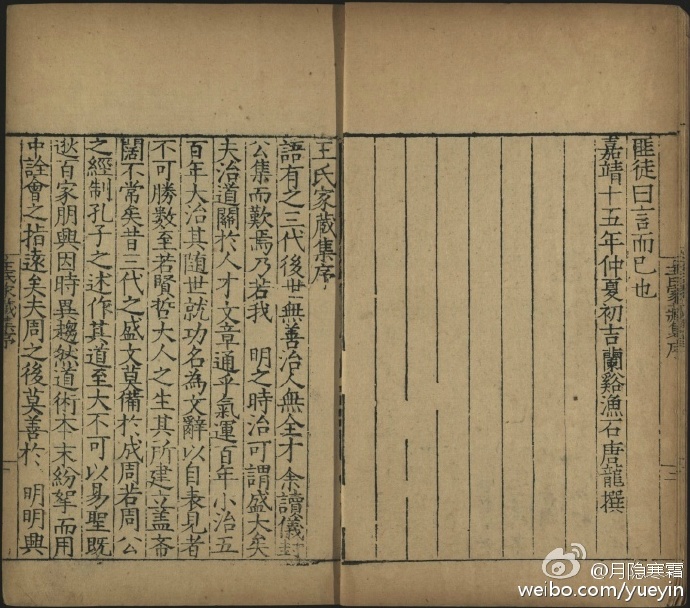 匪徒曰言而已也
嘉靖十五年仲夏初吉蘭谿漁石唐龍撰
王氏家藏集序
語有之三代後世無善治人無全才余讀儀封
公集而歎焉乃若我　明之時治可謂盛大矣
夫治道關於人才文章通乎氣運百年小治五
百年大治其隨世就功名為文辭以自表見者
不可勝數至若賢哲大人之生其所建立蓋
闊不常矣昔三代之盛文莫備於成周若周公
之經制孔子之述作其道至大不可以易聖既
逖百家朋興因時異趨然道術本末紛挐而用
中詮會之指遠矣夫周之後莫善於　明明興
王氏家藏集序
@月隐寒霜
weibo.com/yueyin